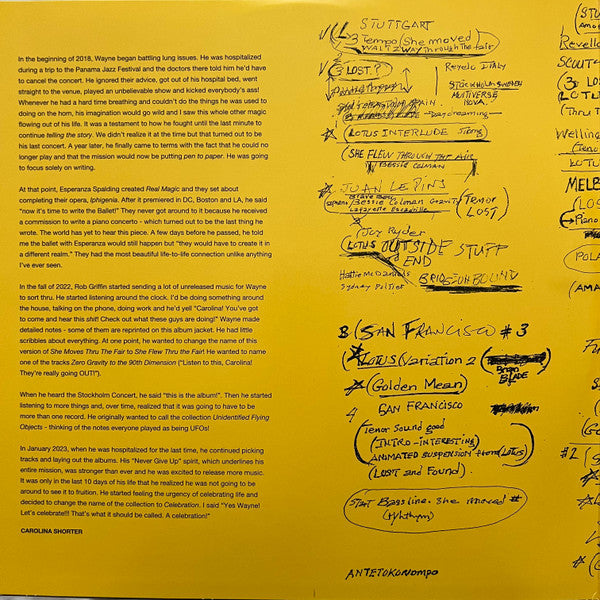 In the beginning of 2018, Wayne began battling lung issues. He was hospitalized
during a trip to the Panama Jazz Festival and the doctors there told him he'd have
to cancel the concert. He ignored their advice, got out of his hospital bed, went
straight to the venue, played an unbelievable show and kicked everybody's ass!
Whenever he had a hard time breathing and couldn't do the things he was used to
doing on the horn, his imagination would go wild and I saw this whole other magic
flowing out of his life. It was a testament to how he fought until the last minute to
continue telling the story. We didn't realize it at the time but that turned out to be
his last concert. A year later, he finally came to terms with the fact that he could no
longer play and that the mission would now be putting pen to paper. He was going
to focus solely on writing.
At that point, Esperanza Spalding created Real Magic and they set about
completing their opera, Iphigenia. After it premiered in DC, Boston and LA, he said
"now it's time to write the Ballet!" They never got around to it because he received
a commission to write a piano concerto - which turned out to be the last thing he
wrote. The world has yet to hear this piece. A few days before he passed, he told
me the ballet with Esperanza would still happen but "they would have to create it in
a different realm." They had the most beautiful life-to-life connection unlike anything
I've ever seen.
In the fall of 2022, Rob Griffin started sending a lot of unreleased music for Wayne
to sort thru. He started listening around the clock. I'd be doing something around
the house, talking on the phone, doing work and he'd yell "Carolina! You've got
to come and hear this shit! Check out what these guys are doing!" Wayne made
detailed notes - some of them are reprinted on this album jacket. He had little
scribbles about everything. At one point, he wanted to change the name of this
version of She Moves Thru The Fair to She Flew Thru the Fair! He wanted to name
one of the tracks Zero Gravity to the 90th Dimension ("Listen to this, Carolina!
They're really going OUT!").
When he heard the Stockholm Concert, he said "this is the album!". Then he started
listening to more things and, over time, realized that it was going to have to be
more than one record. He originally wanted to call the collection Unidentified Flying
Objects - thinking of the notes everyone played as being UFOs!
In January 2023, when he was hospitalized for the last time, he continued picking
tracks and laying out the albums. His "Never Give Up" spirit, which underlines his
entire mission, was stronger than ever and he was excited to release more music.
It was only in the last 10 days of his life that he realized he was not going to be
around to see it to fruition. He started feeling the urgency of celebrating life and
decided to change the name of the collection to Celebration. I said "Yes Wayne!
Let's celebrate!!! That's what it should be called. A celebration!"
CAROLINA SHORTER
STUTTGART
3 Tempo (She moved)
WALTZ WAY through the fair
(3 LOST?) Revelo ITALY
STOCKHOLM SWEDEN
MULTIVERSE
NOVA.
Daydreaming
(LOTUS INTERLUDE Strong)
(SHE FLEW THROUGH THE AIR
BESSIE COLMAN
JUAN LE PINS
Bessie Colman Gravity (TENOR
LOST)
Lafayette Escadrille
(Joy Ryder
(LOTUS OUTSIDE STUFF
END
Hattie McDaniels
Sydney Poitier
BRIDGEON BOUND
B (SAN FRANCISCO #3
LOTUS (Variation 2
Brian
BLADE
(Golden Mean)
4 SAN FRANCISCO
Tenor sound good
(INTRO - INTERESTING)
ANIMATED SUSPENSION (LOTUS)
(LOST and Found)
START Bassline. She moved #
(Rhythym)
ANTETOKONOMPO
Revello
LOTU
(Thru T
Wellin
(Teno
LOTUS
MELB
(LOS
Piano
(POLA
(AMA
#2